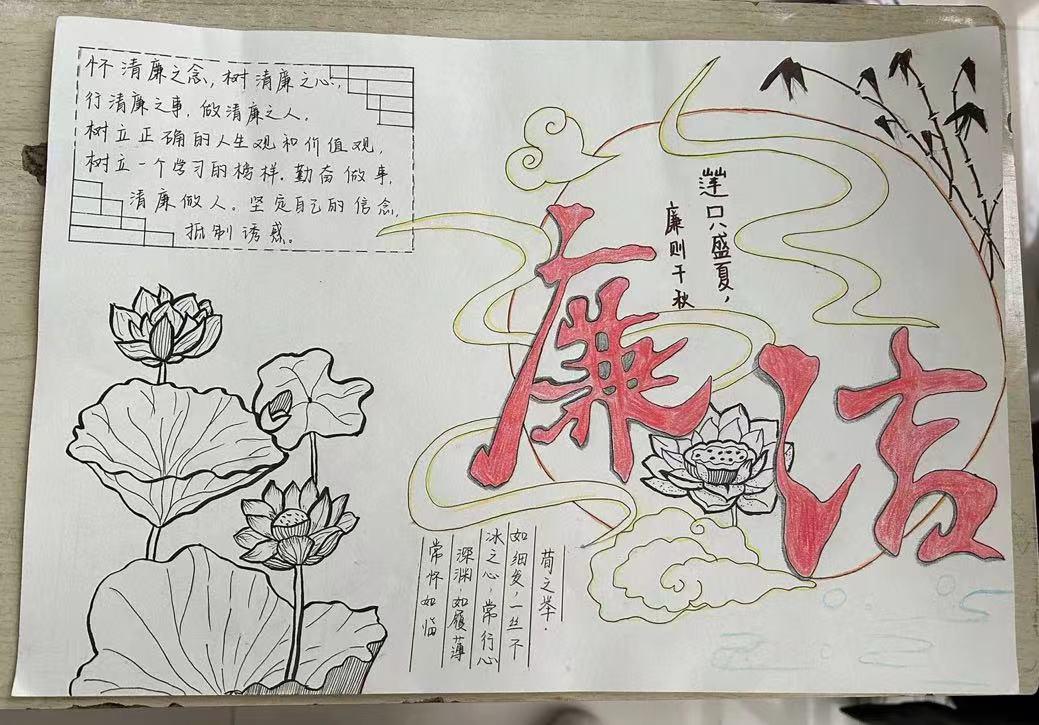 怀清廉之念，树清廉之心，
行清廉之事，做清廉之人。
树立正确的人生观和价值观，
树立一个学习的榜样。勤奋做事，
清廉做人。坚定自己的信念，
抵制诱惑。
莲只盛夏，
廉则千秋
廉洁
常怀如临
深渊，如履薄
冰之心，常行心
如细发，一丝不
苟之举.